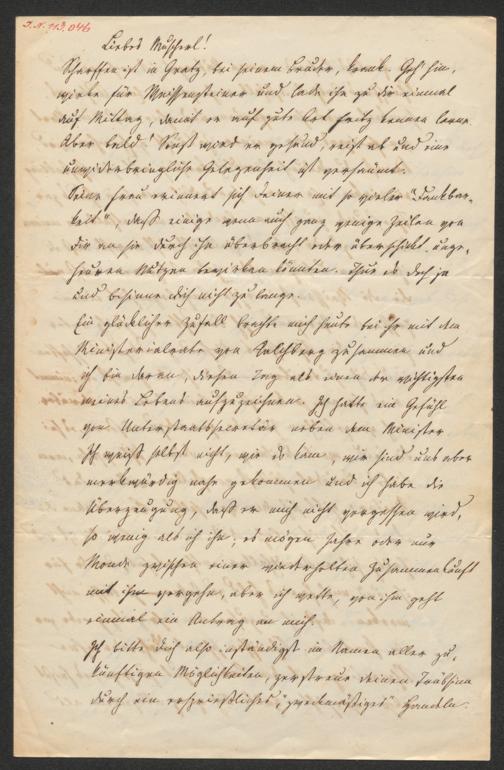 I.N. 113.046
Liebes Muscherl!
Scharffen ist in Gratz, bei seinem Bruder, krank. Geh' hin,
wirke für Meissensteiner und lade ihn zu dir einmal
auf Mittag, damit er auf gute Art Fritz kennen lerne.
Aber bald! Sonst wird er gesund, reist ab und eine
unwiderbringliche Gelegenheit ist versäumt.
Seine Frau erinnert sich deiner mit so vieler "Dankbar-
keit", daß einige wenn auch ganz wenige Zeilen von
dir an sie durch ihn überbracht oder überschickt, unge-
heuren Nutzen bewirken könnten. Thue es doch ja
und besinne dich nicht zu lange.
Ein glücklicher Zufall brachte mich heute bei ihr mit dem
Ministerialrate von zusammen und
ich bin daran, diesen Tag als einen der wichtigsten
meines Lebens aufzuzeichnen. Ich hatte ein Gefühl
von Unterstaatssecretär neben dem Minister.
Ich weiß selbst nicht, wie es kam, wir sind uns aber
merkwürdig nahe gekommen und ich habe die
Überzeugung, daß er mich nicht vergessen wird,
so wenig als ich ihn; es mögen Jahre oder nur
Monde zwischen einer wiederholten Zusammenkunft
mit ihm vergehn, aber ich wette, von ihm geht
einmal ein Antrag an mich.
Ich bitte dich also inständigst im Namen aller zu-
künftigen Möglichkeiten, zerstreue deinen Trübsinn
durch ein ersprießliches, "zweckmäßiges" Handeln.